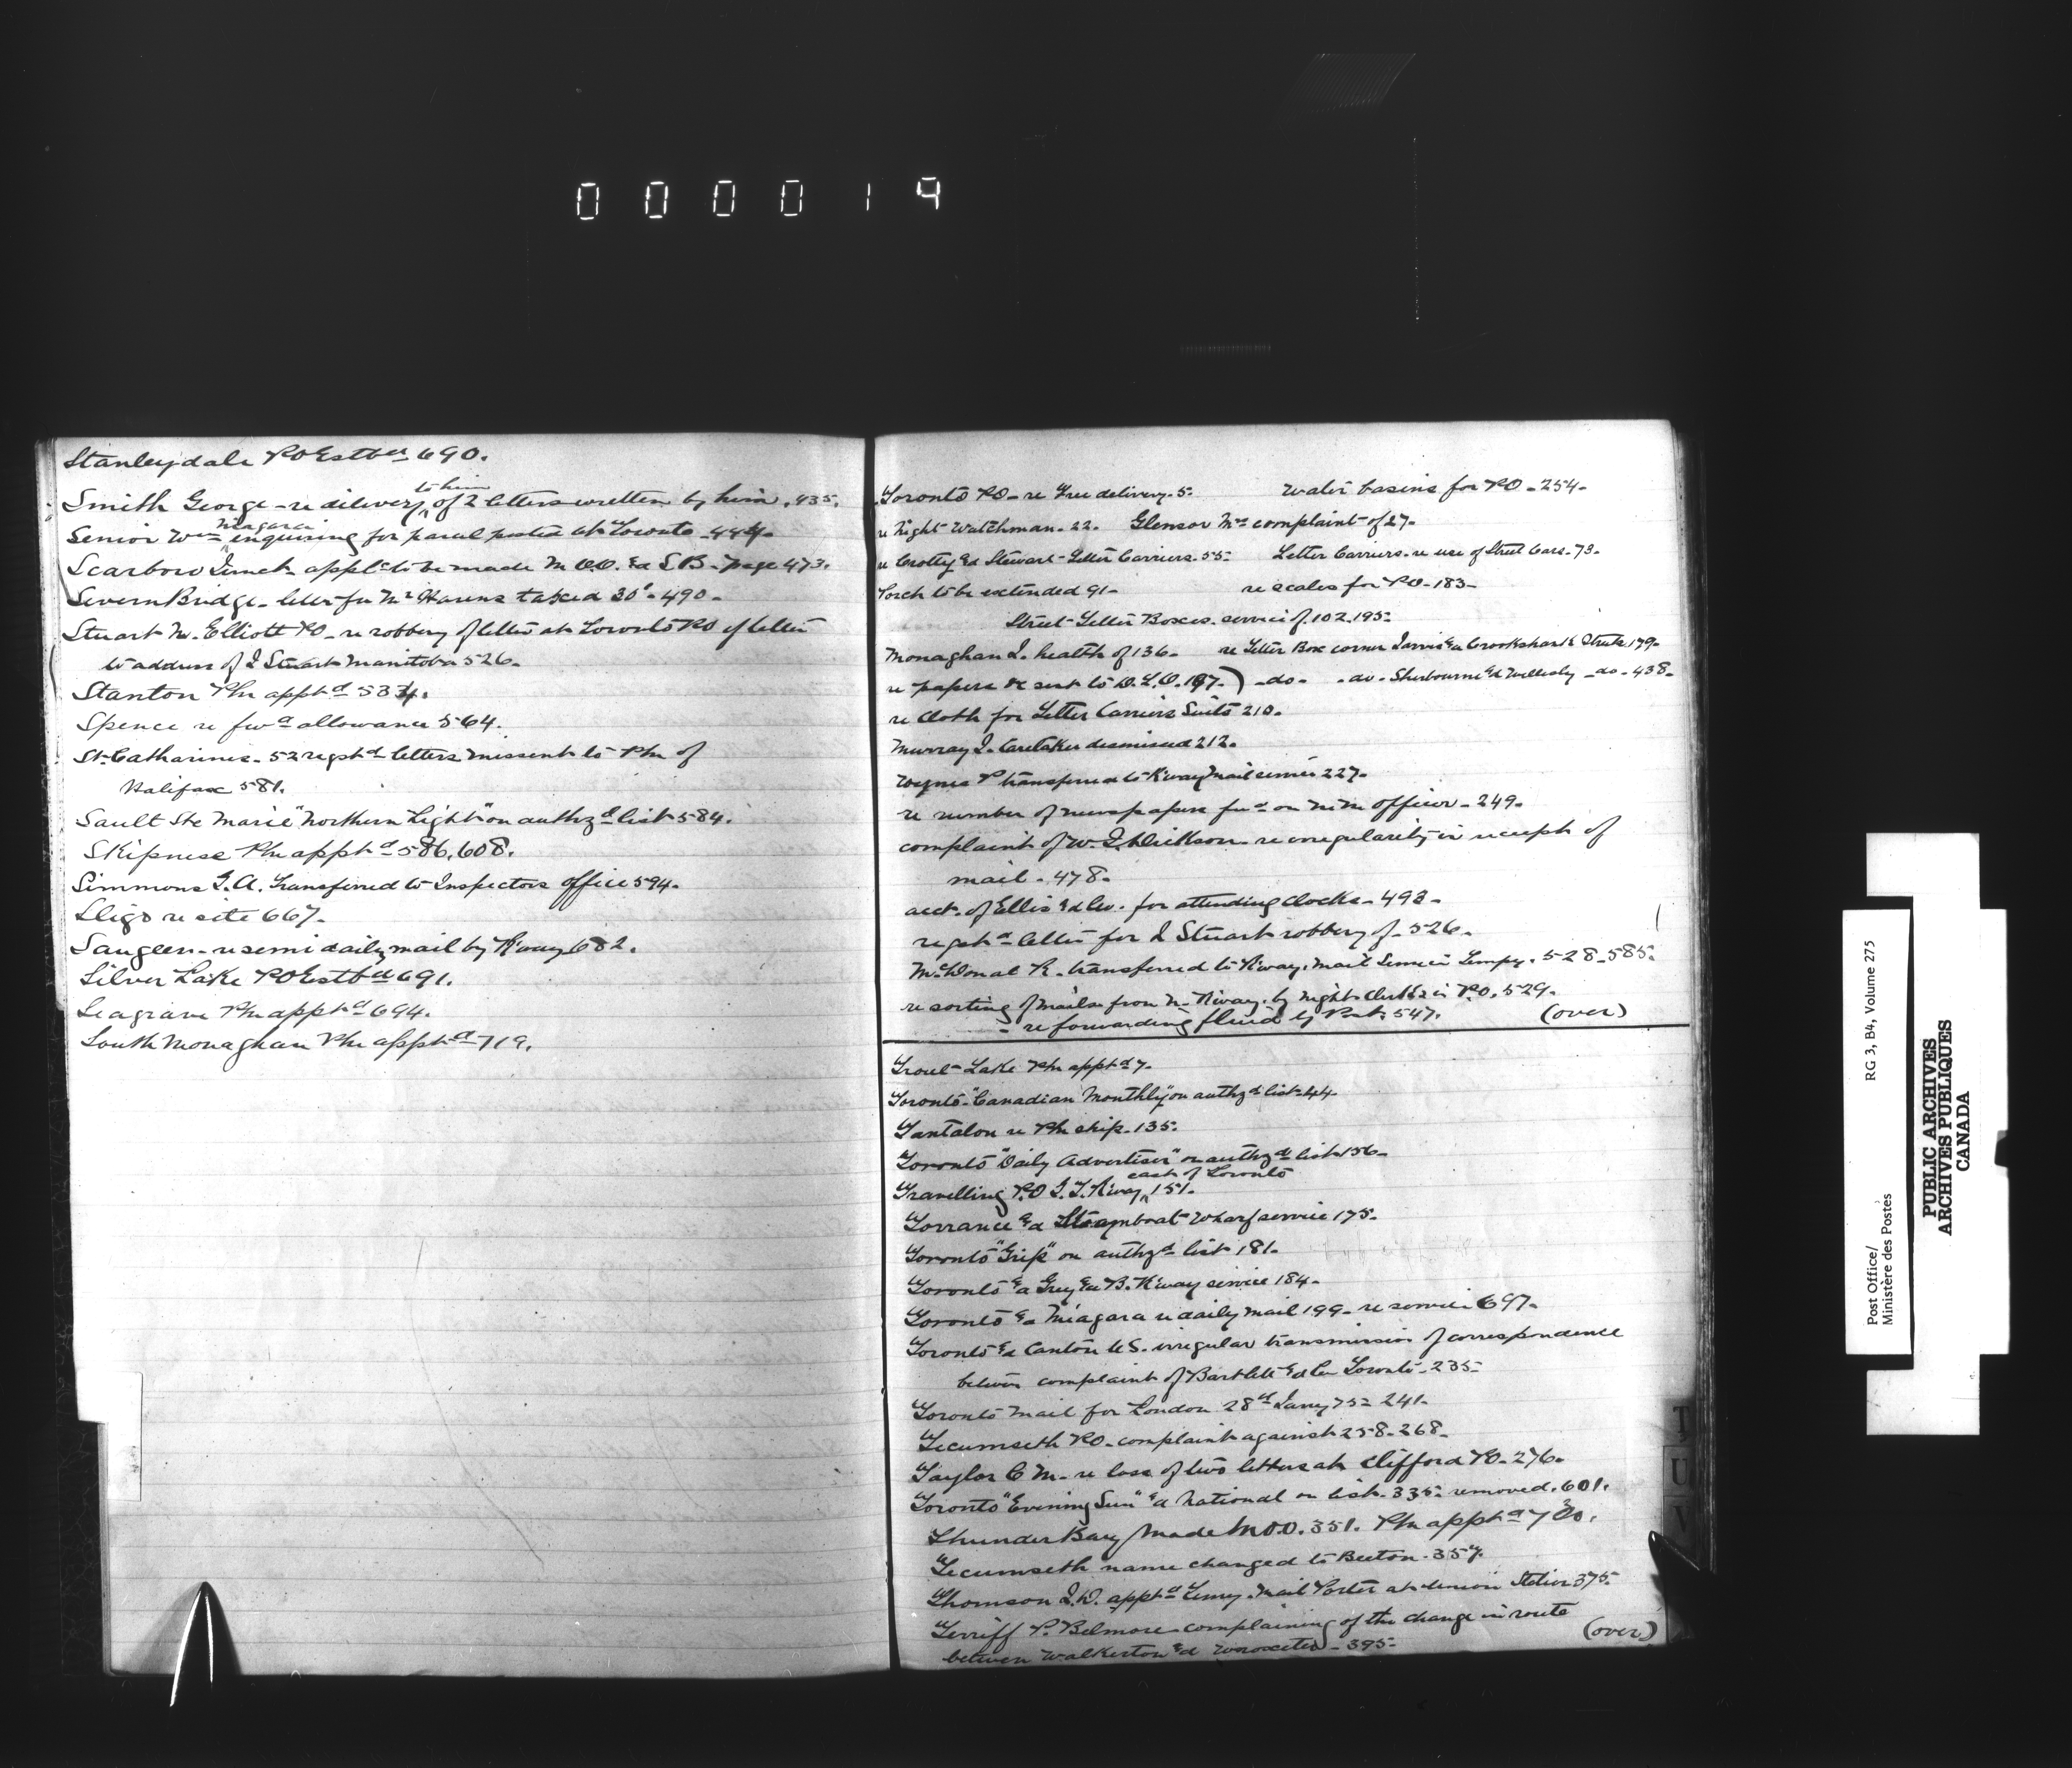 0 0 0 0 1 9
Stanleydale PO Estbd 690.
to him
Smith George - re delivery of 2 letters written by him. 435.
Niagara
Senior Wm enquiring for parcel posted at Toronto 444.
Scarboro Junct. applc to be made M.O.O. &d S.B. page 473.
Severn Bridge - letter for Mr Havens taxed 30c. 490.
Stuart M. Elliott PO - re robbery of letter at Toronto PO of letter
to address of J Stuart Manitoba 526.
Stanton Pm apptd 534.
Spence re fwd allowance 564.
St. Catharines. 52 regstd letters missent to Pm of
Halifax 581.
Sault Ste Marie "Northern Light" on authzd list 584.
Skipness Pm apptd 586, 608.
Simmons G.A. transferred to Inspectors office 594.
Sligo re site 667.
Saugeen - re semi daily mail by Rway 682.
Silver Lake PO Estbd 691.
Seagrave Pm apptd 694.
South Monaghan Pm apptd 719.
Toronto PO - re Free delivery. 5. Water basins for PO - 254.
re Night Watchman. 22. Glensor Mrs complaint of 27.
re Crotty &d Stewart - Letter Carriers. 55. Letter Carriers - re use of Street Cars. 73.
Porch to be extended 91. re scales for PO - 183.
Street Letter Boxes. service of. 102. 195.
Monaghan J. health of 136. re Letter Box corner Jarvis &d Crookshank Streets 179.
re papers &c sent to D.L.O. 197.) - do - . do. Sherbourne &d Wellesly - do - 438.
re Cloth for Letter Carriers Suits 210.
Murray J. Caretaker dismissed 212.
P transferred to Rway Mail service 227.
re number of newspapers fwd on officer - 249.
complaint of W. J. Dickson - re irregularity in receipt of
mail - 478.
acct. of Ellis &d Co. for attending Clocks - 493.
regstd letter for J Stuart robbery of - 526.
McDonal R. transferred to Rway. Mail Service Tempy. 528. 585.
re sorting of mails from N. Rway. by Night Clerks in P.O. 529.
- re forwarding fluid by Post. 547. (over)
Trout Lake Pm apptd 7.
Toronto - "Canadian Monthly" on authzd list 44.
Tantalon re Pm ship. 135.
Toronto "Daily Advertiser" on authzd list 156.
east of Toronto
Travelling P.O. G.T. Rway 151.
Torrance &d Steamboat Wharf service 175.
Toronto "Grip" on authzd list 181.
Toronto &d Grey &d B. Rway service 184.
Toronto &d Niagara re daily mail 199 - re service 697.
Toronto &d Canton U.S. irregular transmission of correspondence
between complaint of Bartlett &d Co Toronto - 235.
Toronto Mail for London 28th Jany 75 - 241.
Tecumseth PO - complaint against 258 - 268.
Taylor C M - re loss of two letters at Clifford PO - 276.
Toronto "Evening Sun" &d National on list - 335. removed. 601.
Thunder Bay made M.O.O. 351. Pm apptd
Tecumseth name changed to Beeton. 357.
Thomson J.D. apptd Temy. Mail Porter at Union Station 375.
Terriff P. Belmore - complaining of the change in route (over)
between Walkerton &d Wroxeter - 395.
T
U
V
Post Office/
Ministère des Postes
RG 3, B4, Volume 275
PUBLIC ARCHIVES
ARCHIVES PUBLIQUES
CANADA